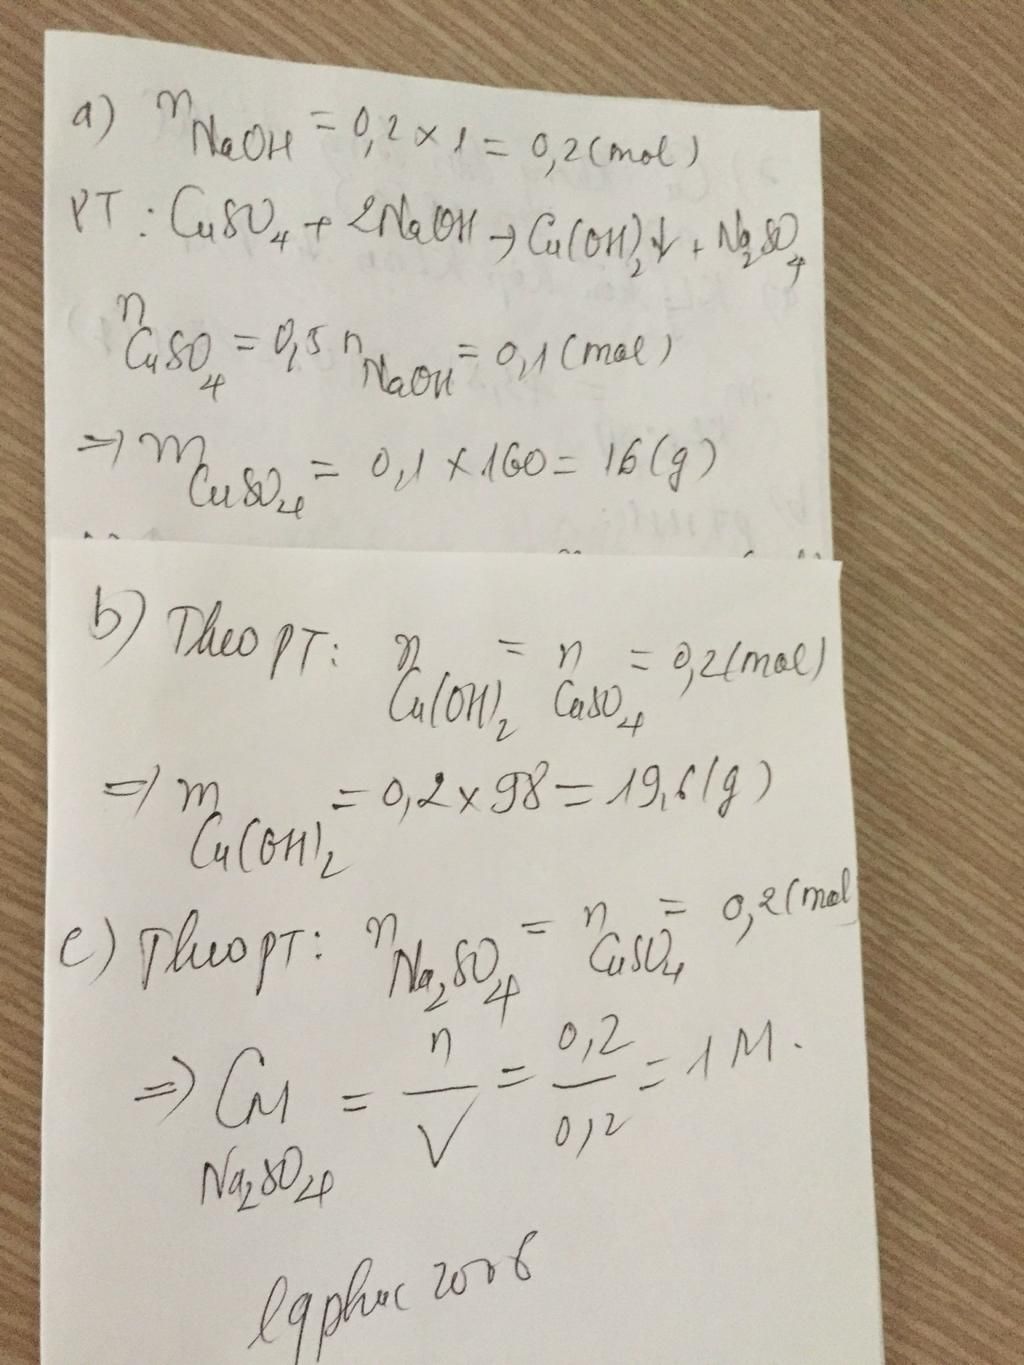 a) nNaOH = 0,2 × 1 = 0,2 (mol)
PT : CuSO4 + 2NaOH → Cu(OH)2↓ + Na2SO4
nCuSO4 = 0,5 nNaOH = 0,1 (mol)
=> mCuSO4 = 0,1 × 160 = 16 (g)
b) Theo PT: nCu(OH)2 = nCuSO4 = 0,2 (mol)
=> mCu(OH)2 = 0,2 × 98 = 19,6 (g)
c) Theo PT: nNa2SO4 = nCuSO4 = 0,2 (mol
=> CM Na2SO4 = n/V = 0,2/0,2 = 1M.
lqphuc2006